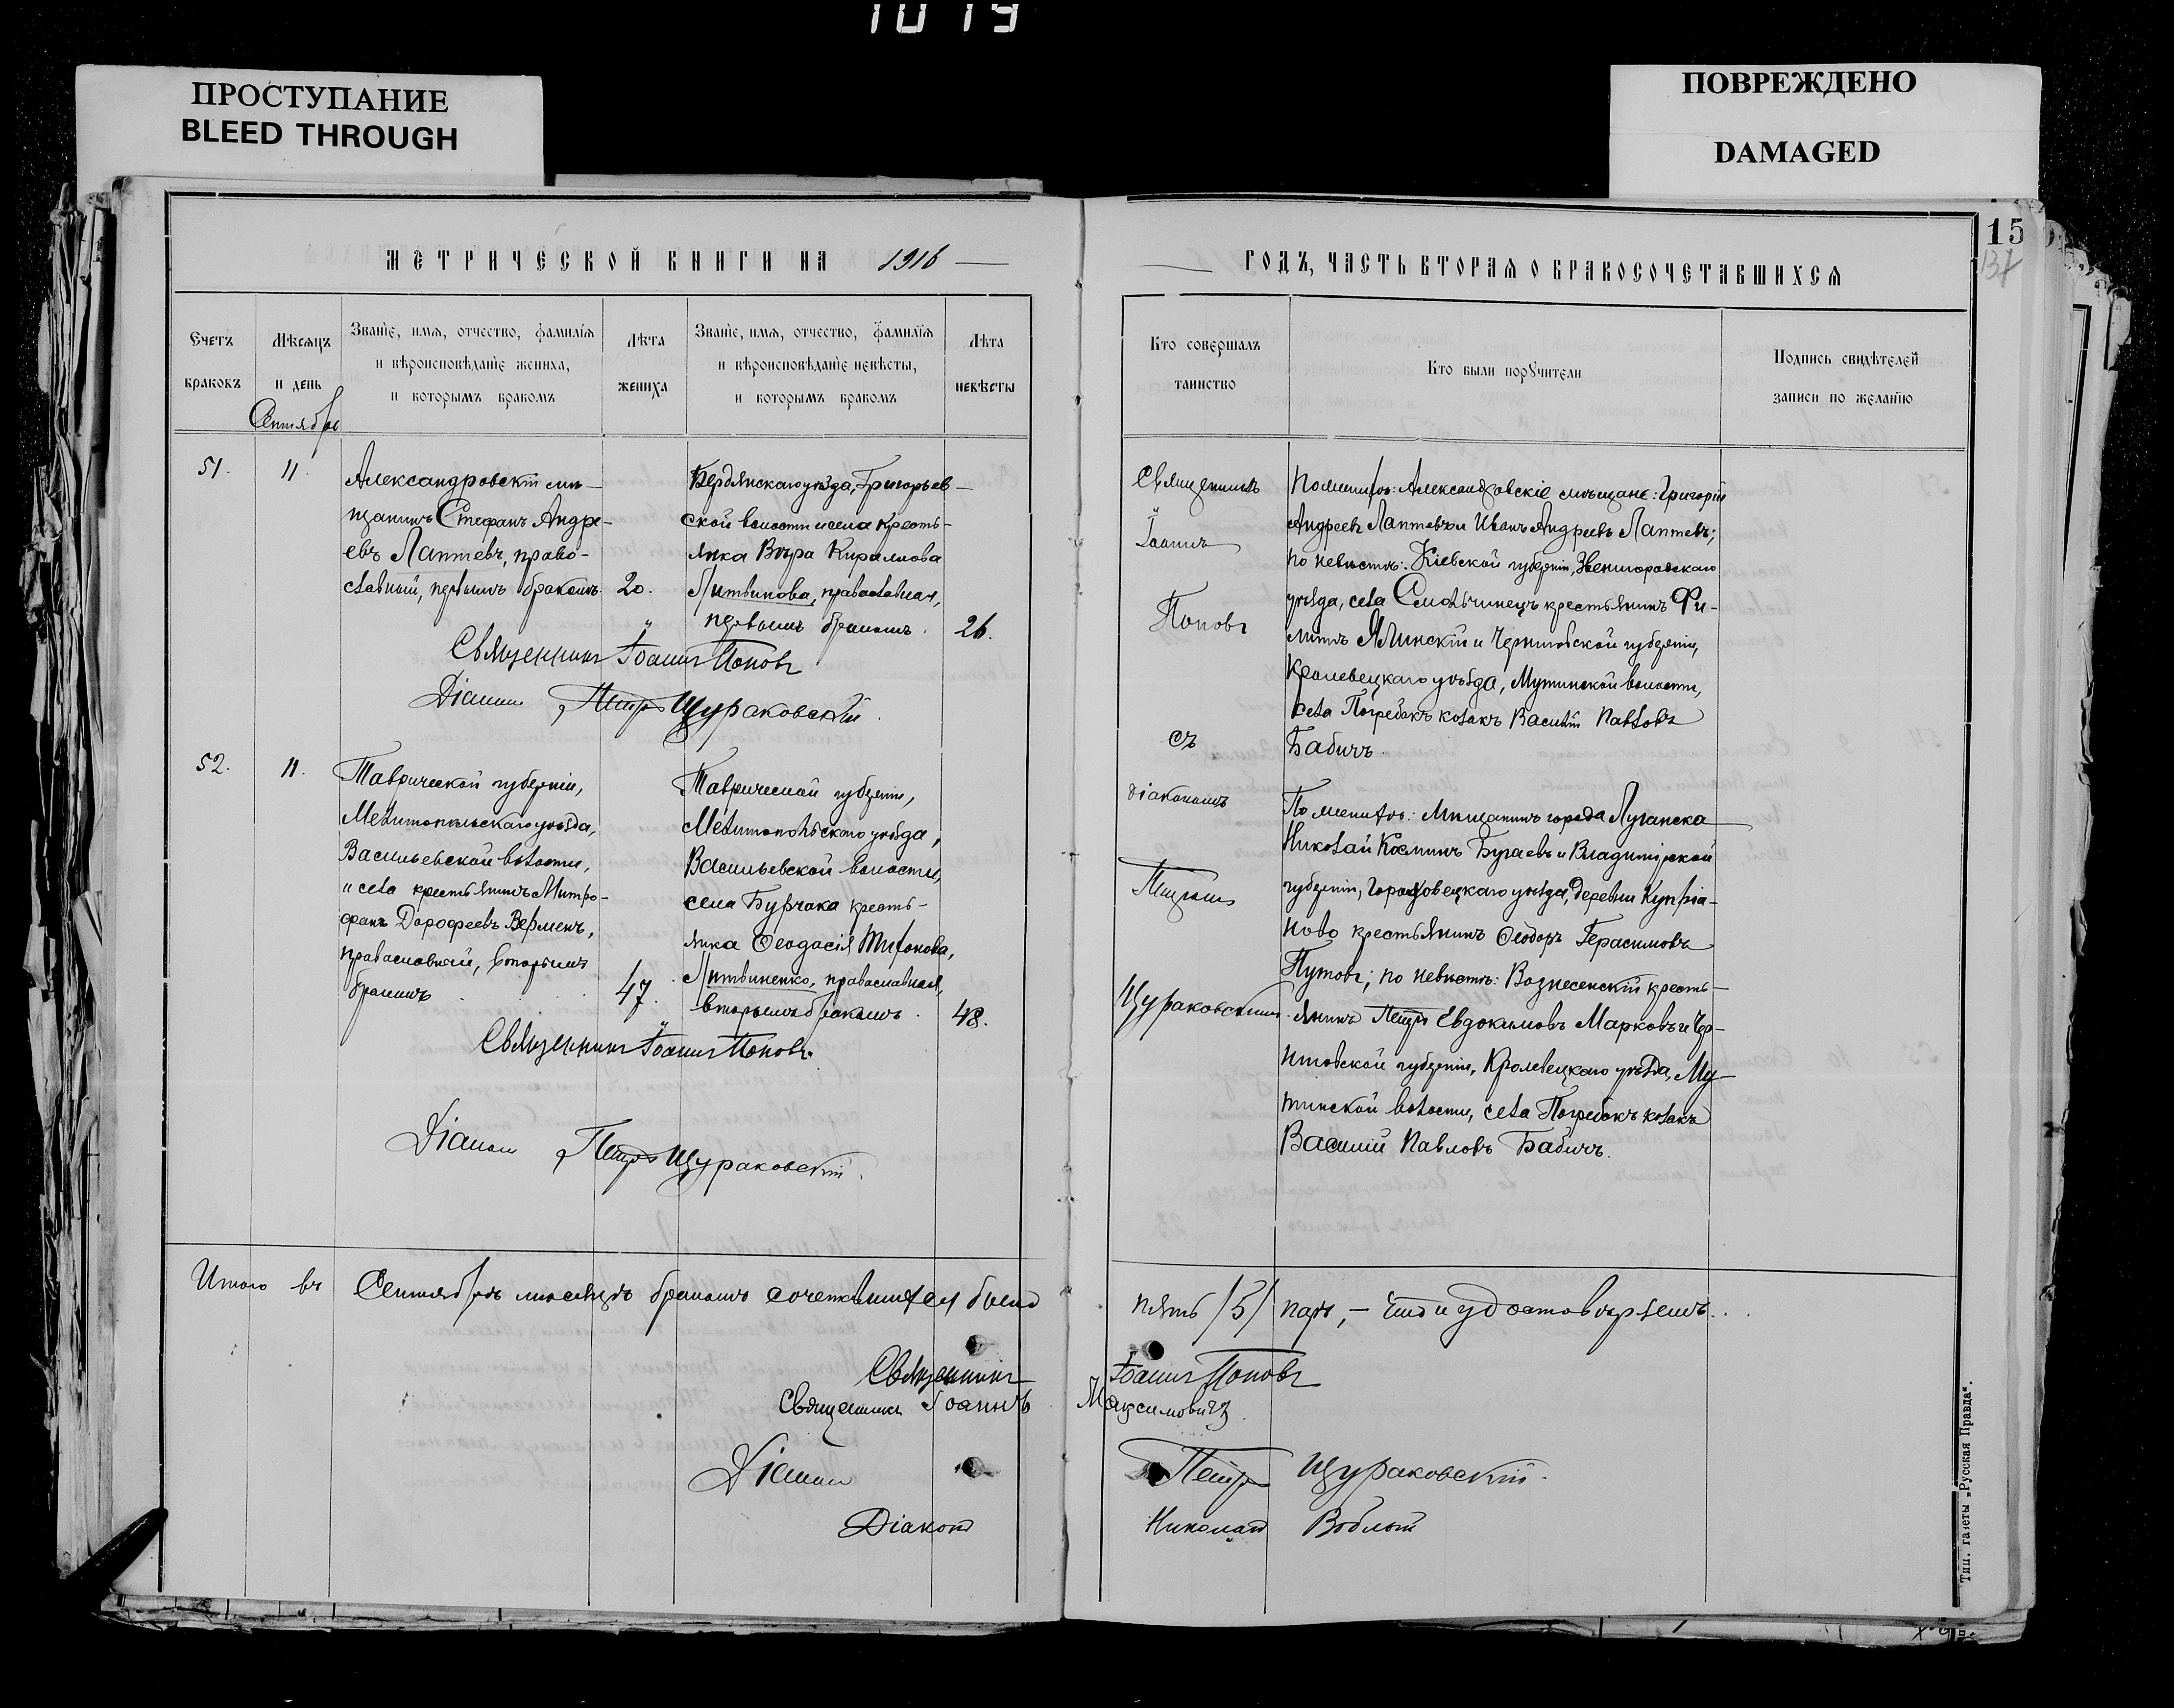 1019
ПРОСТУПАНИЕ
BLEED THROUGH
ПОВРЕЖДЕНО
DAMAGED
15
МЕТРИЧЕСКОЙ КНИГИ НА 1916
Счетъ браковъ
Мѣсяцъ и день
Званіе, имя, отчество, фамилія и вѣроисповѣданіе жениха, и которымъ бракомъ
Лѣта жениха
Званіе, имя, отчество, фамилія и вѣроисповѣданіе невѣсты, и которымъ бракомъ
Лѣта невѣсты
Сентябрь
51.
11.
Александровскій мѣ-
щанинъ Стефанъ Андре-
евъ Лаптевъ, право-
славный, первымъ бракомъ.
20.
Бердянскаго уѣзда, Григорьев-
ской волости и села кресть-
янка Вѣра Кирилова
Литвинова, православная,
первымъ бракомъ.
26.
Священникъ Іоаннъ Поповъ
Діаконъ Петръ Щураковскій.
52.
11.
Таврической губерніи,
Мелитопольскаго уѣзда,
Васильевской волости,
и села крестьянинъ Митро-
фанъ Дорофеевъ Верменъ,
православный, вторымъ
бракомъ
47.
Таврической губерніи,
Мелитопольскаго уѣзда,
Васильевской волости,
села Бурчака кресть-
янка Ѳеодосія
Литвиненко, православная,
вторымъ бракомъ.
48.
Священникъ Іоаннъ Поповъ.
Діаконъ Петръ Щураковскій.
Итого въ Сентябрѣ мѣсяцѣ бракомъ сочетавшихся было
Священникъ
Священникъ Іоаннъ
Діаконъ
Діаконъ
ГОДЪ, ЧАСТЬ ВТОРАЯ О БРАКОСОЧЕТАВШИХСЯ
Кто совершалъ таинство
Кто были поручители
Подпись свидѣтелей записи по желанію
Священникъ
Іоаннъ
Поповъ
съ
діакономъ
Петромъ
Щураковскимъ.
По женихѣ: Александровскіе мѣщане: Григорій
Андреевъ Лаптевъ и Иванъ Андреевъ Лаптевъ;
по невѣстѣ: Кіевской губерніи, Звенигородскаго
уѣзда, села Смольчинецъ крестьянинъ Фи-
липпъ Ялинскій и Черниговской губерніи,
Кролевецкаго уѣзда, Мутинской волости,
села Погребокъ козакъ Василій Павловъ
Бабичъ.
По женихѣ: Мѣщанинъ города Луганска
Николай Козминъ Бугаевъ и Владимірской
губерніи, Гороховецкаго уѣзда, деревни Купріа-
ново крестьянинъ Ѳеодоръ Герасимовъ
Путовъ; по невѣстѣ: Вознесенскій кресть-
янинъ Петръ Евдокимовъ Марковъ и Чер-
ниговской губерніи, Кролевецкаго уѣзда, Му-
тинской волости, села Погребокъ козакъ
Василій Павловъ Бабичъ.
пять /5/ паръ, – что и удостовѣряемъ.
Іоаннъ Поповъ
Максимовичъ
Петръ Щураковскій.
Николай
Тип. газеты „Русская Правда“.